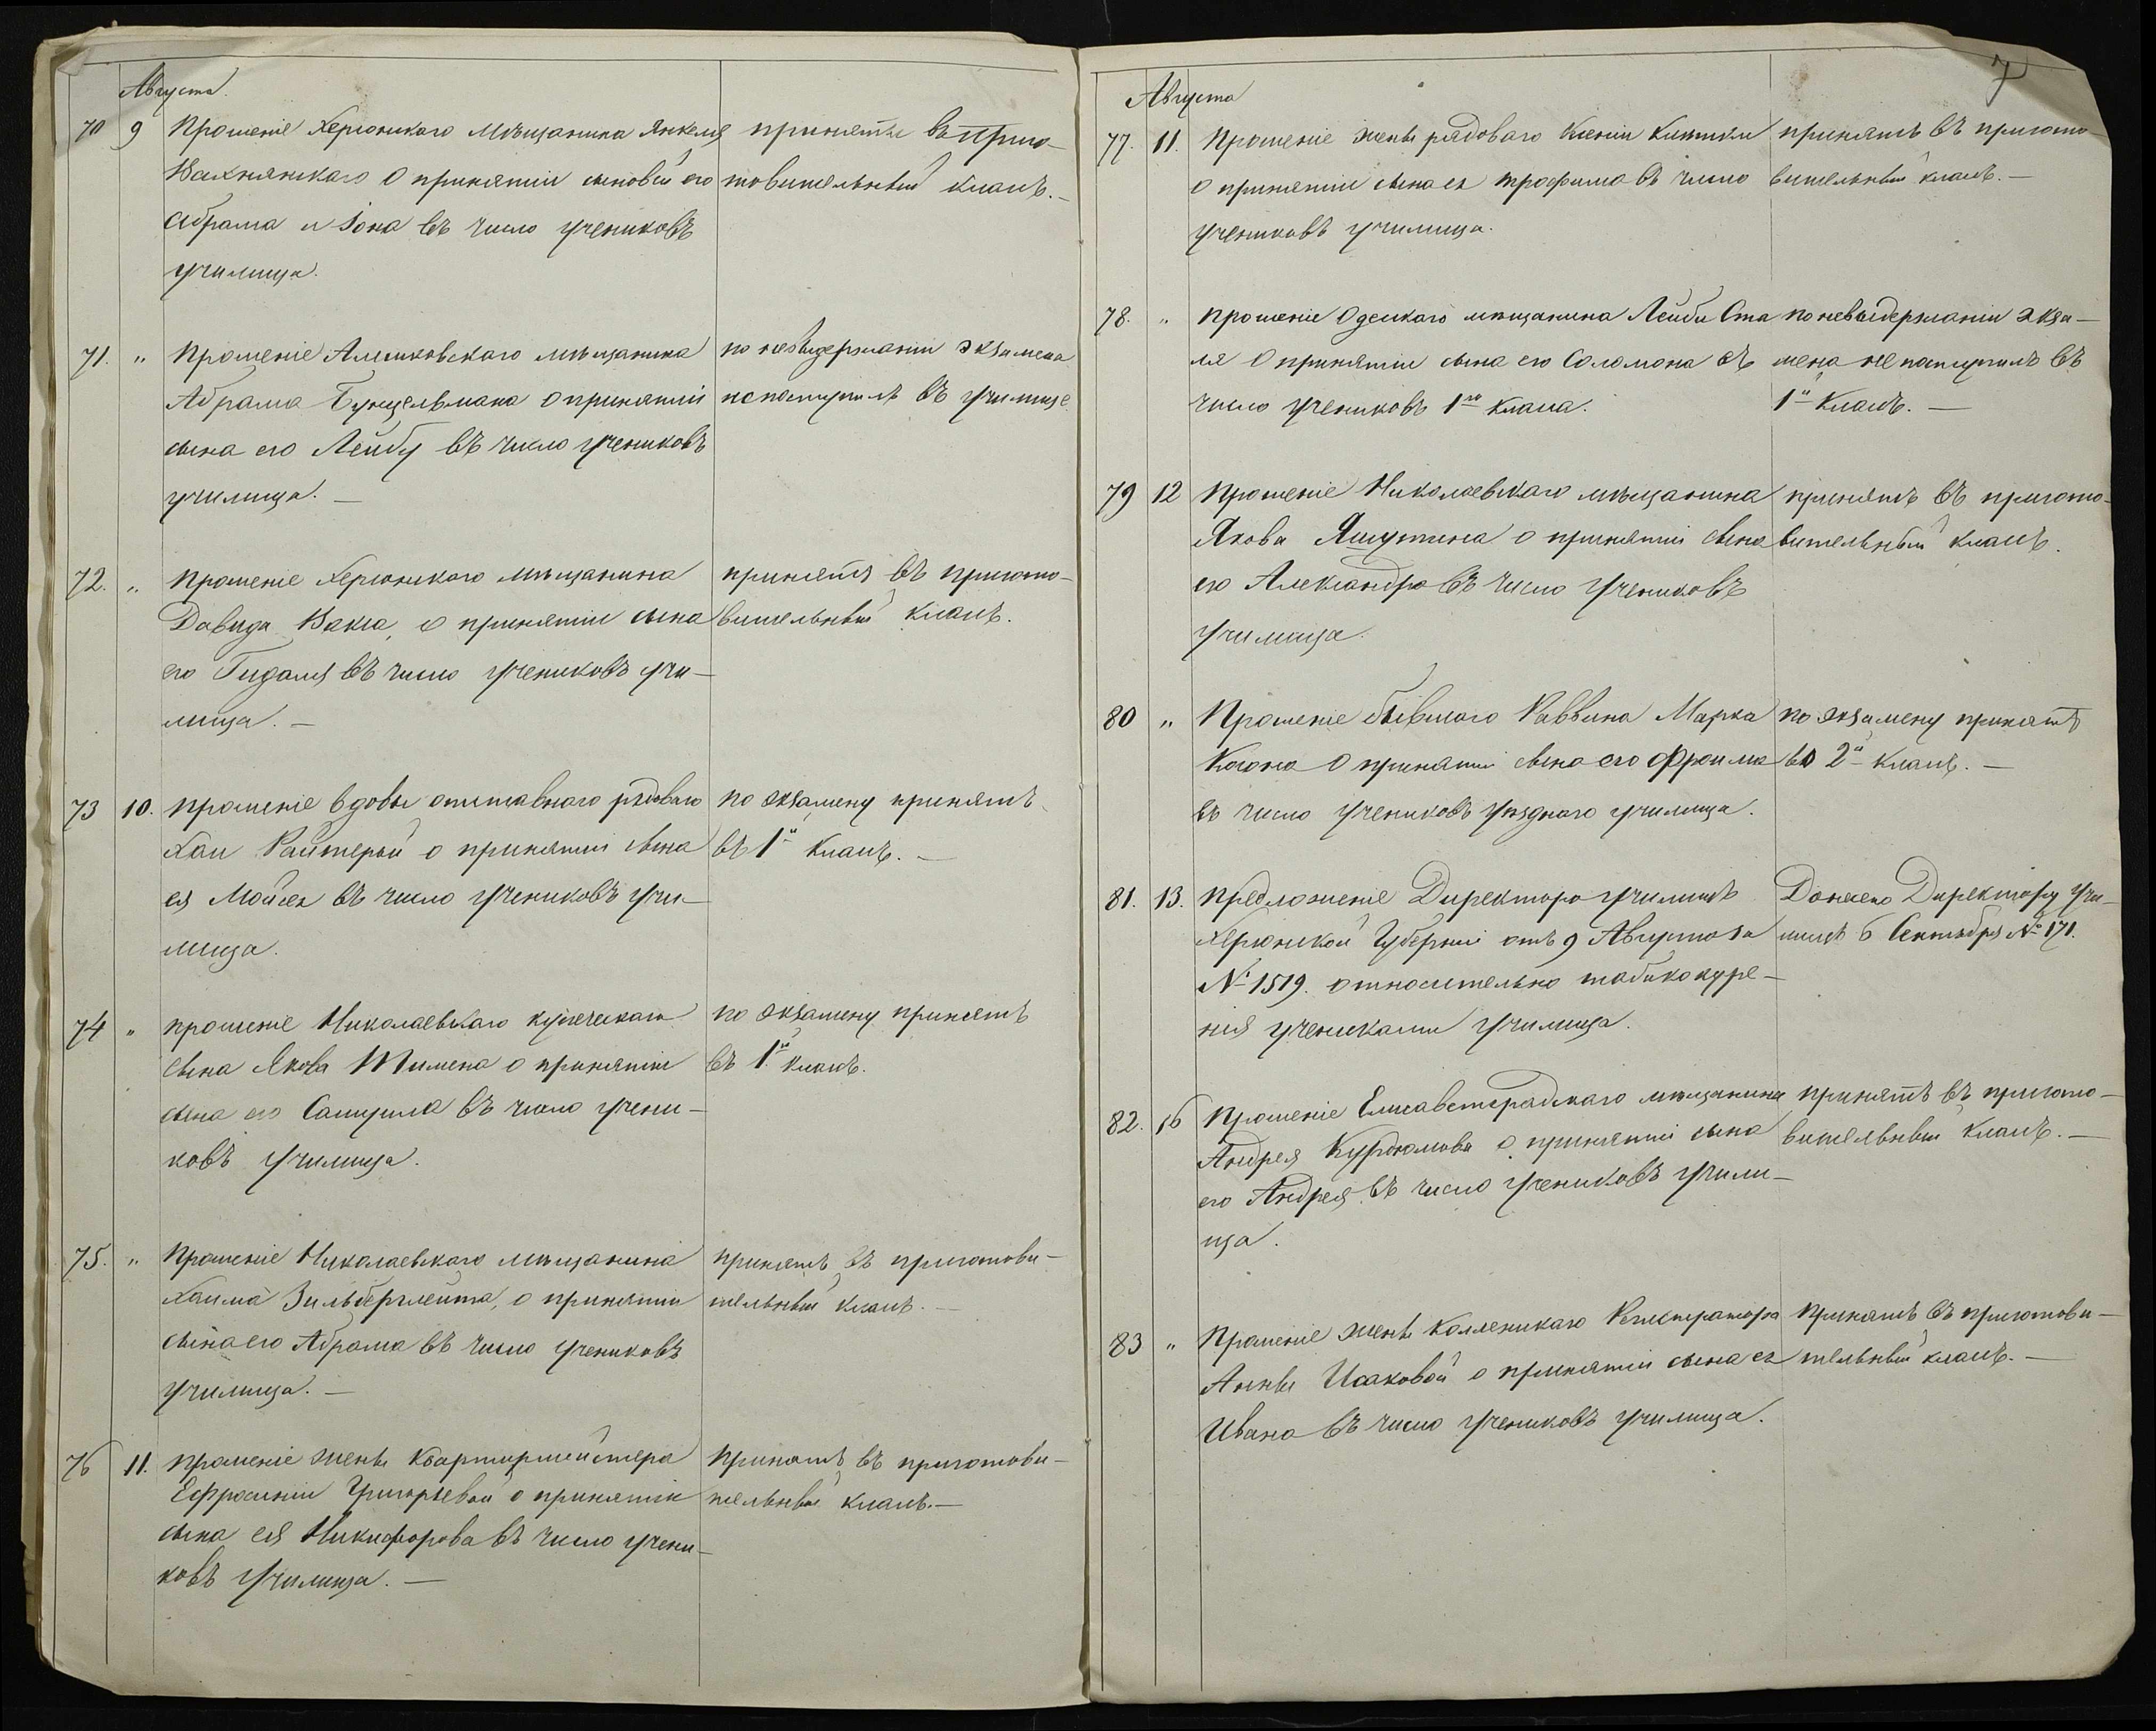 Августа.
70 9 Прошеніе Херсонскаго Мѣщанина Янкеля приняты въ приго-
Вахнянскаго о принятіи сыновей его товительный классъ.-
Абрама и Іона въ число учениковъ
училища.
71. „ Прошеніе мѣщанина по невыдержаніи экзамена
Абрама о принятіи не поступилъ въ училище
сына его Лейбу въ число учениковъ
училища. —
72. „ Прошеніе Херсонскаго мѣщанина принятъ въ пригото-
Давида Вакса, о принятіи сына вительный классъ.
его Гидаля въ число учениковъ учи-
лища. —
73 10. прошеніе вдовы отставнаго рядоваго по экзамену принятъ
Хаи Райтерой о принятіи сына въ 1й классъ. —
ея Мойсея въ число учениковъ учи-
лища.
74 „ прошеніе Николаевскаго купеческаго по экзамену принятъ
сына Якова о принятіи въ 1й классъ.
сына его Самуила въ число учени-
ковъ училища.
75. „ Прошеніе Николаевскаго мѣщанина принятъ въ приготови-
Хаима Зильберглейта, о принятіи тельный классъ. —
сына его Абрама въ число учениковъ
училища. —
76 11. прошеніе жены квартирмейстера Принятъ въ приготови-
Ефросиніи Григорьевой о принятіи тельный классъ. —
сына ея Никифорова въ число учени-
ковъ училища. —
7
Августа
77. 11. Прошеніе жены рядоваго Ксеніи принятъ въ пригото-
о принятіи сына ея Трофима въ число вительный классъ. —
учениковъ училища.
78. „ прошеніе Одескаго мѣщанина Лейбы Ста по невыдержаніи экза-
ля о принятіи сына его Соломона въ мена не поступилъ въ
число учениковъ 1го класса. 1й классъ. —
79 12 Прошеніе Николаевскаго мѣщанина принятъ въ пригото-
Якова о принятіи сына вительный классъ.
его Александра въ число учениковъ
училища.
80 „ Прошеніе бывшаго Раввина Марка по экзамену принятъ
Когона о принятіи сына его Фроима во 2й классъ. —
въ число учениковъ уѣзднаго училища.
81. 13. предложеніе Директора училищъ Донесено Директору учи-
Херсонской Губерніи отъ 9 Августа за лищъ 6 Сентября № 171.
№ 1519. относительно табакокуре-
нія учениками училища.
82. 16 Прошеніе Елисаветградскаго мѣщанина принятъ въ пригото-
Андрея Курдюмова о принятіи сына вительный классъ. —
его Андрея въ число учениковъ учили-
ща.
83 „ Прошеніе жены Коллежскаго Регистратора Принятъ въ приготови-
Анны Исаковой о принятіи сына ея тельный классъ. —
Ивана въ число учениковъ училища.